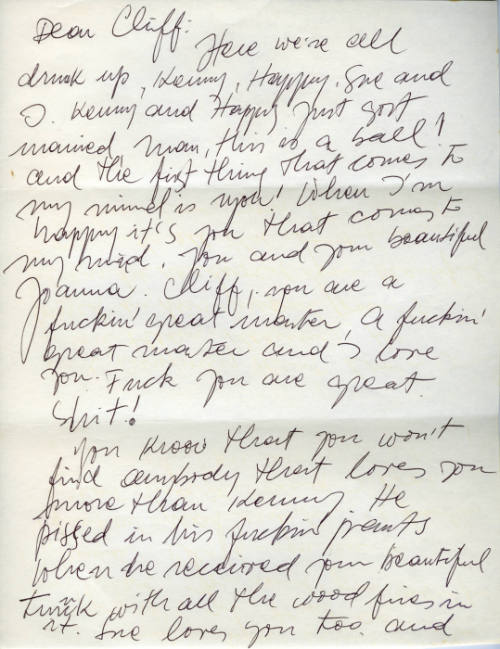 Dear Cliff:
Here we're all
drunk up, Kenny, Happy, Sue and
I. Kenny and Happy just got
married man, this is a ball!
and the first thing that comes to
my mind is you! When I'm
happy it's you that comes to
my mind. You and your beautiful
Joanna. Cliff, you are a
fuckin' great master, A fuckin'
great master and I love
you. Fuck you are great
shit!
You know that you won't
find anybody that loves you
more than Kenny. He
pissed in his fuckin pants
When he received your beautiful
trunk with all the wood fires in
it. Sue loves you too. and